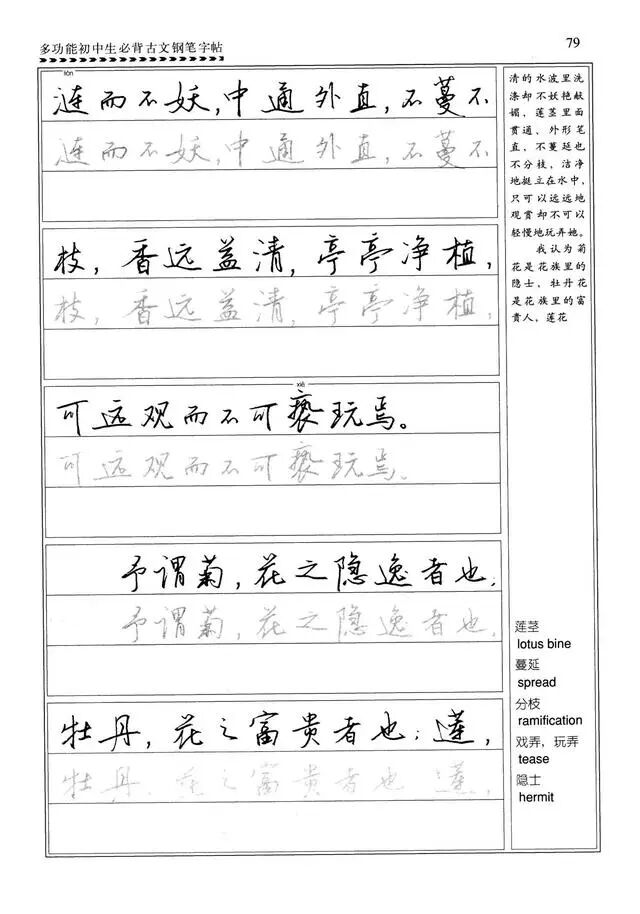 多功能初中生必背古文钢笔字帖
79
lón
涟而不妖，中通外直，不蔓不
涟而不妖，中通外直，不蔓不
枝，香远益清，亭亭净植，
枝，香远益清，亭亭净植，
xiè
可远观而不可亵玩焉。
可远观而不可亵玩焉。
予谓菊，花之隐逸者也；
予谓菊，花之隐逸者也；
牡丹，花之富贵者也；莲，
牡丹，花之富贵者也；莲，
清的水波里洗
涤却不妖艳献
媚，莲茎里面
贯通、外形笔
直，不蔓延也
不分枝，洁净
地挺立在水中，
只可以远远地
观赏却不可以
轻慢地玩弄她。
我认为菊
花是花族里的
隐士，牡丹花
是花族里的富
贵人，莲花
莲茎
lotus bine
蔓延
spread
分枝
ramification
戏弄，玩弄
tease
隐士
hermit